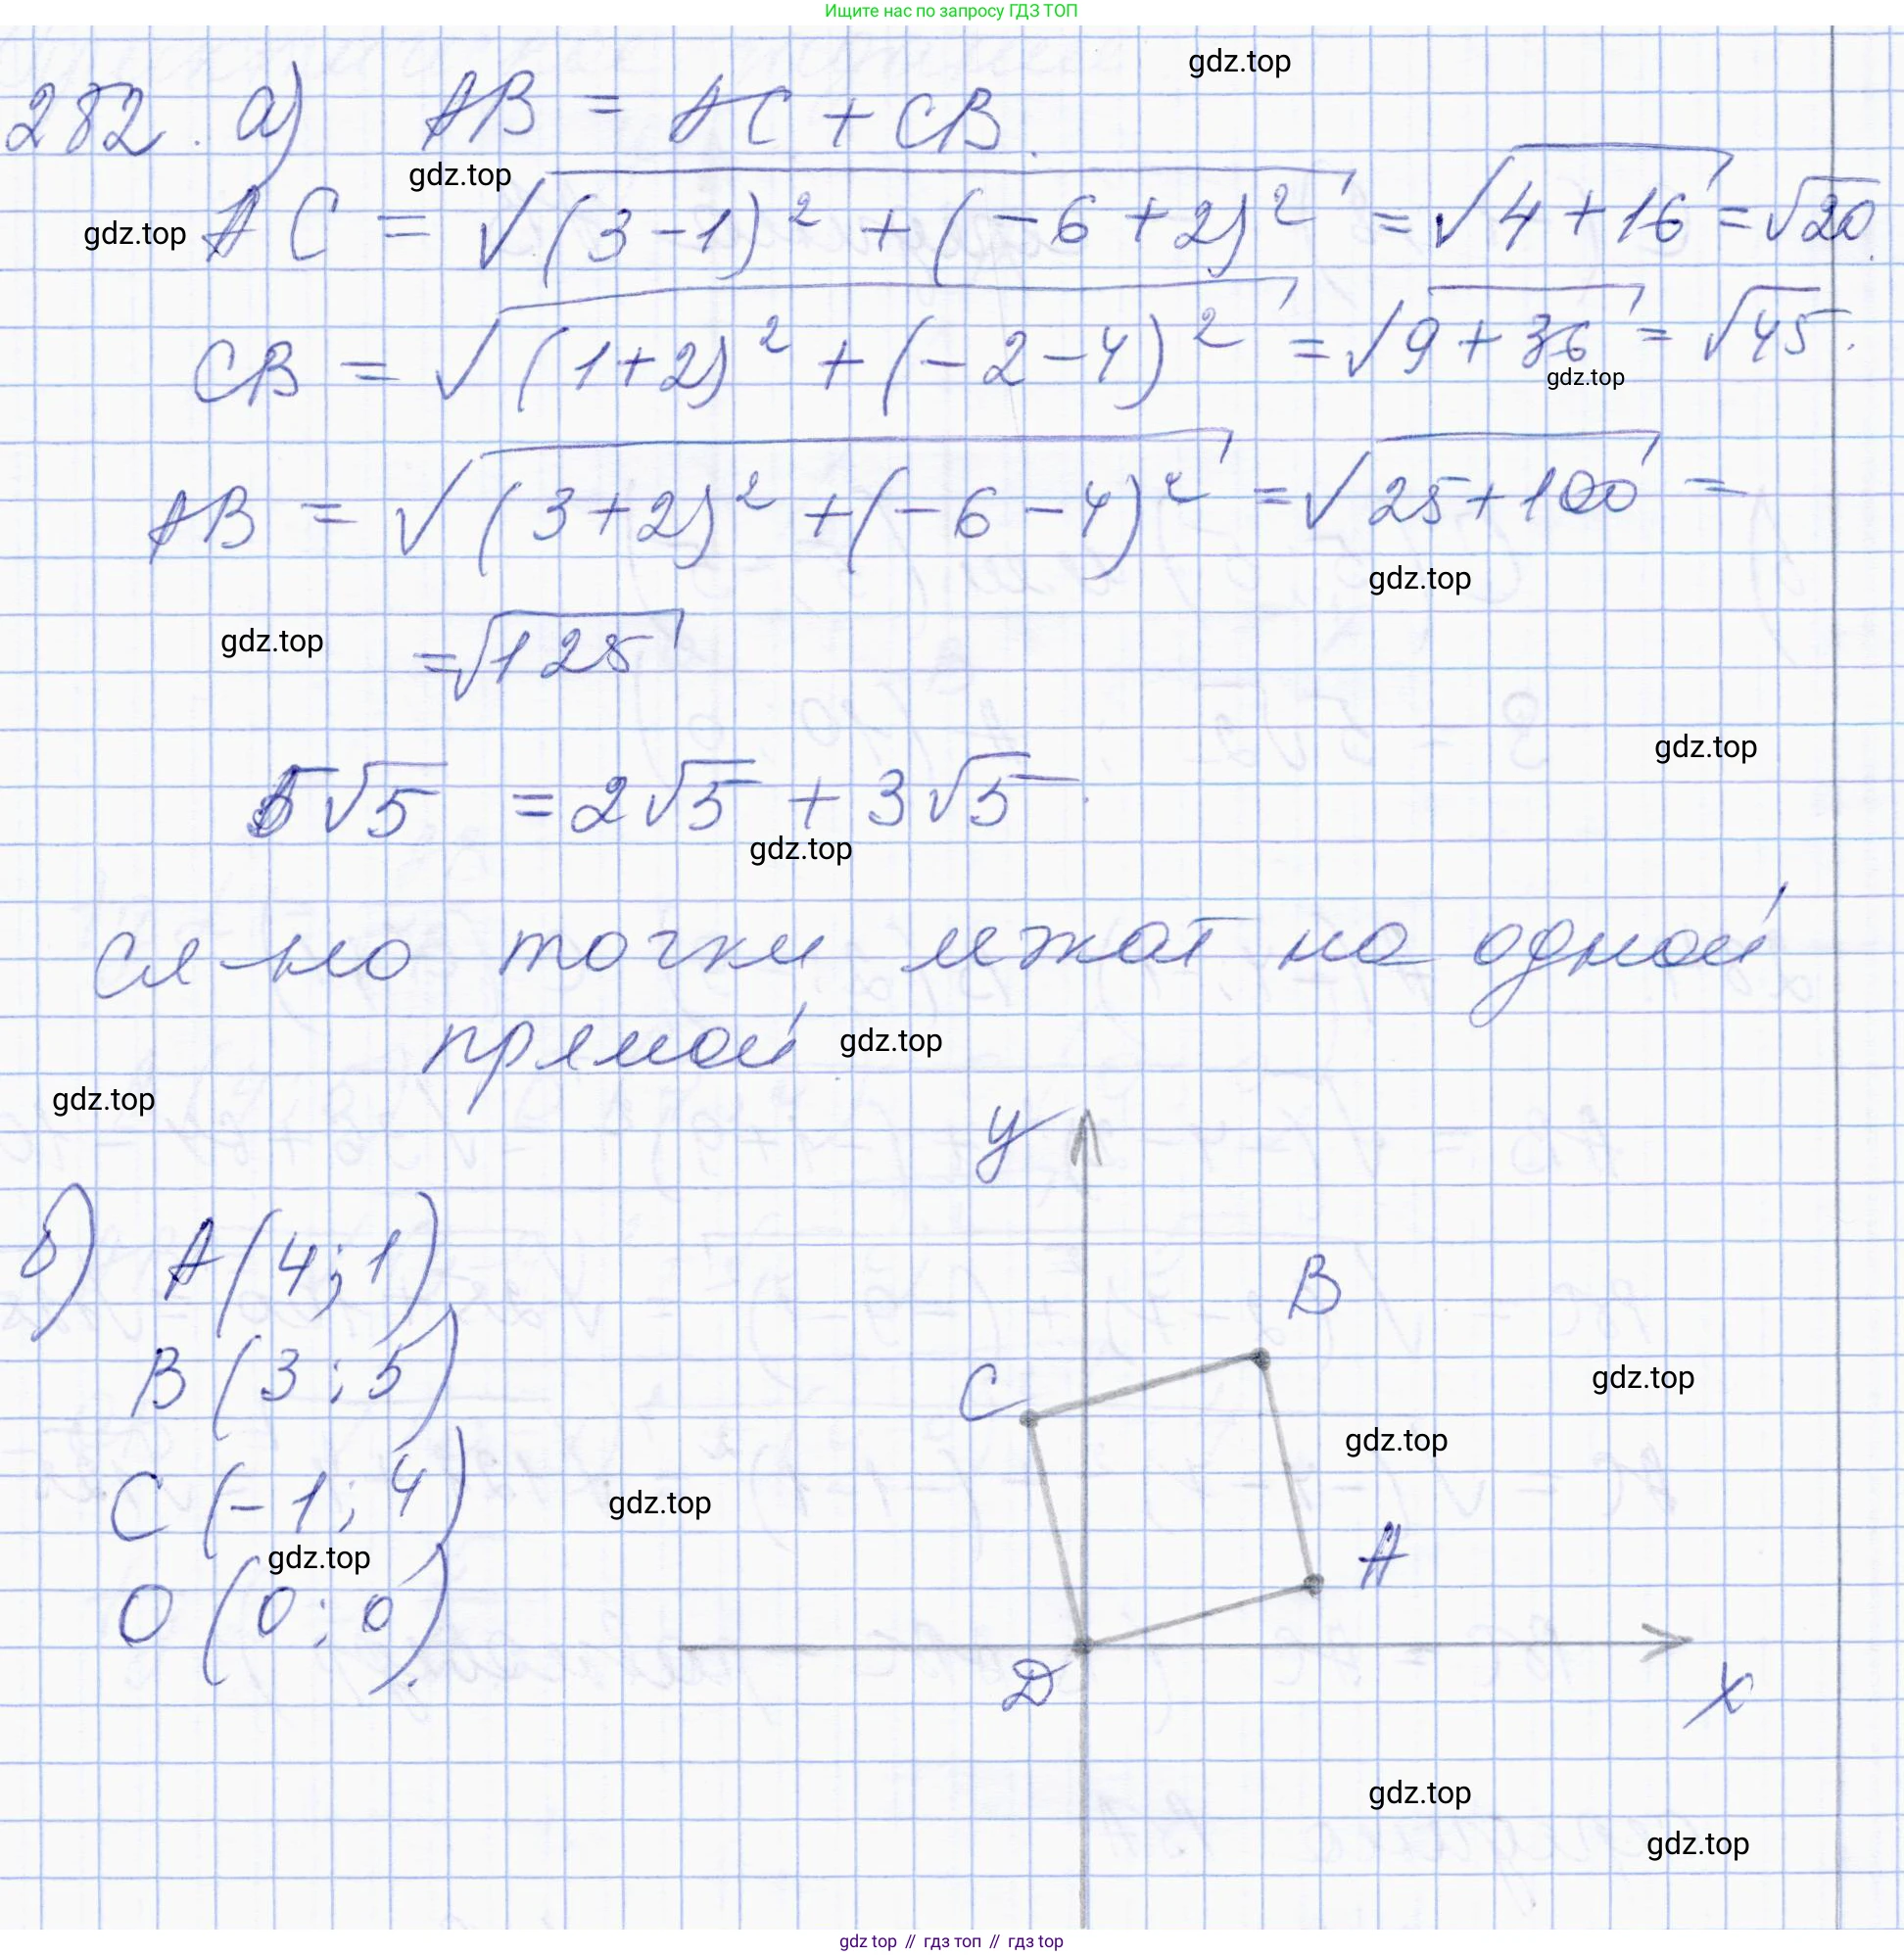 Ищите нас по запросу ГДЗ ТОП
gdz.top
282. а) AB = AC + CB.
gdz.top
gdz.top
AC = √(3-1)² + (-6+2)² = √4+16 = √20.
CB = √(1+2)² + (-2-4)² = √9+36 = √45.
gdz.top
AB = √(3+2)² + (-6-4)² = √25+100 =
gdz.top
gdz.top
= √125
gdz.top
5√5 = 2√5 + 3√5.
gdz.top
сл-но точки лежат на одной
прямой.
gdz.top
gdz.top
y
б) A(4; 1)
B
B(3; 5)
C
gdz.top
gdz.top
C(-1; 4)
gdz.top
gdz.top
A
O(0; 0).
D
x
gdz.top
gdz.top
gdz.top // гдз топ // гдз top